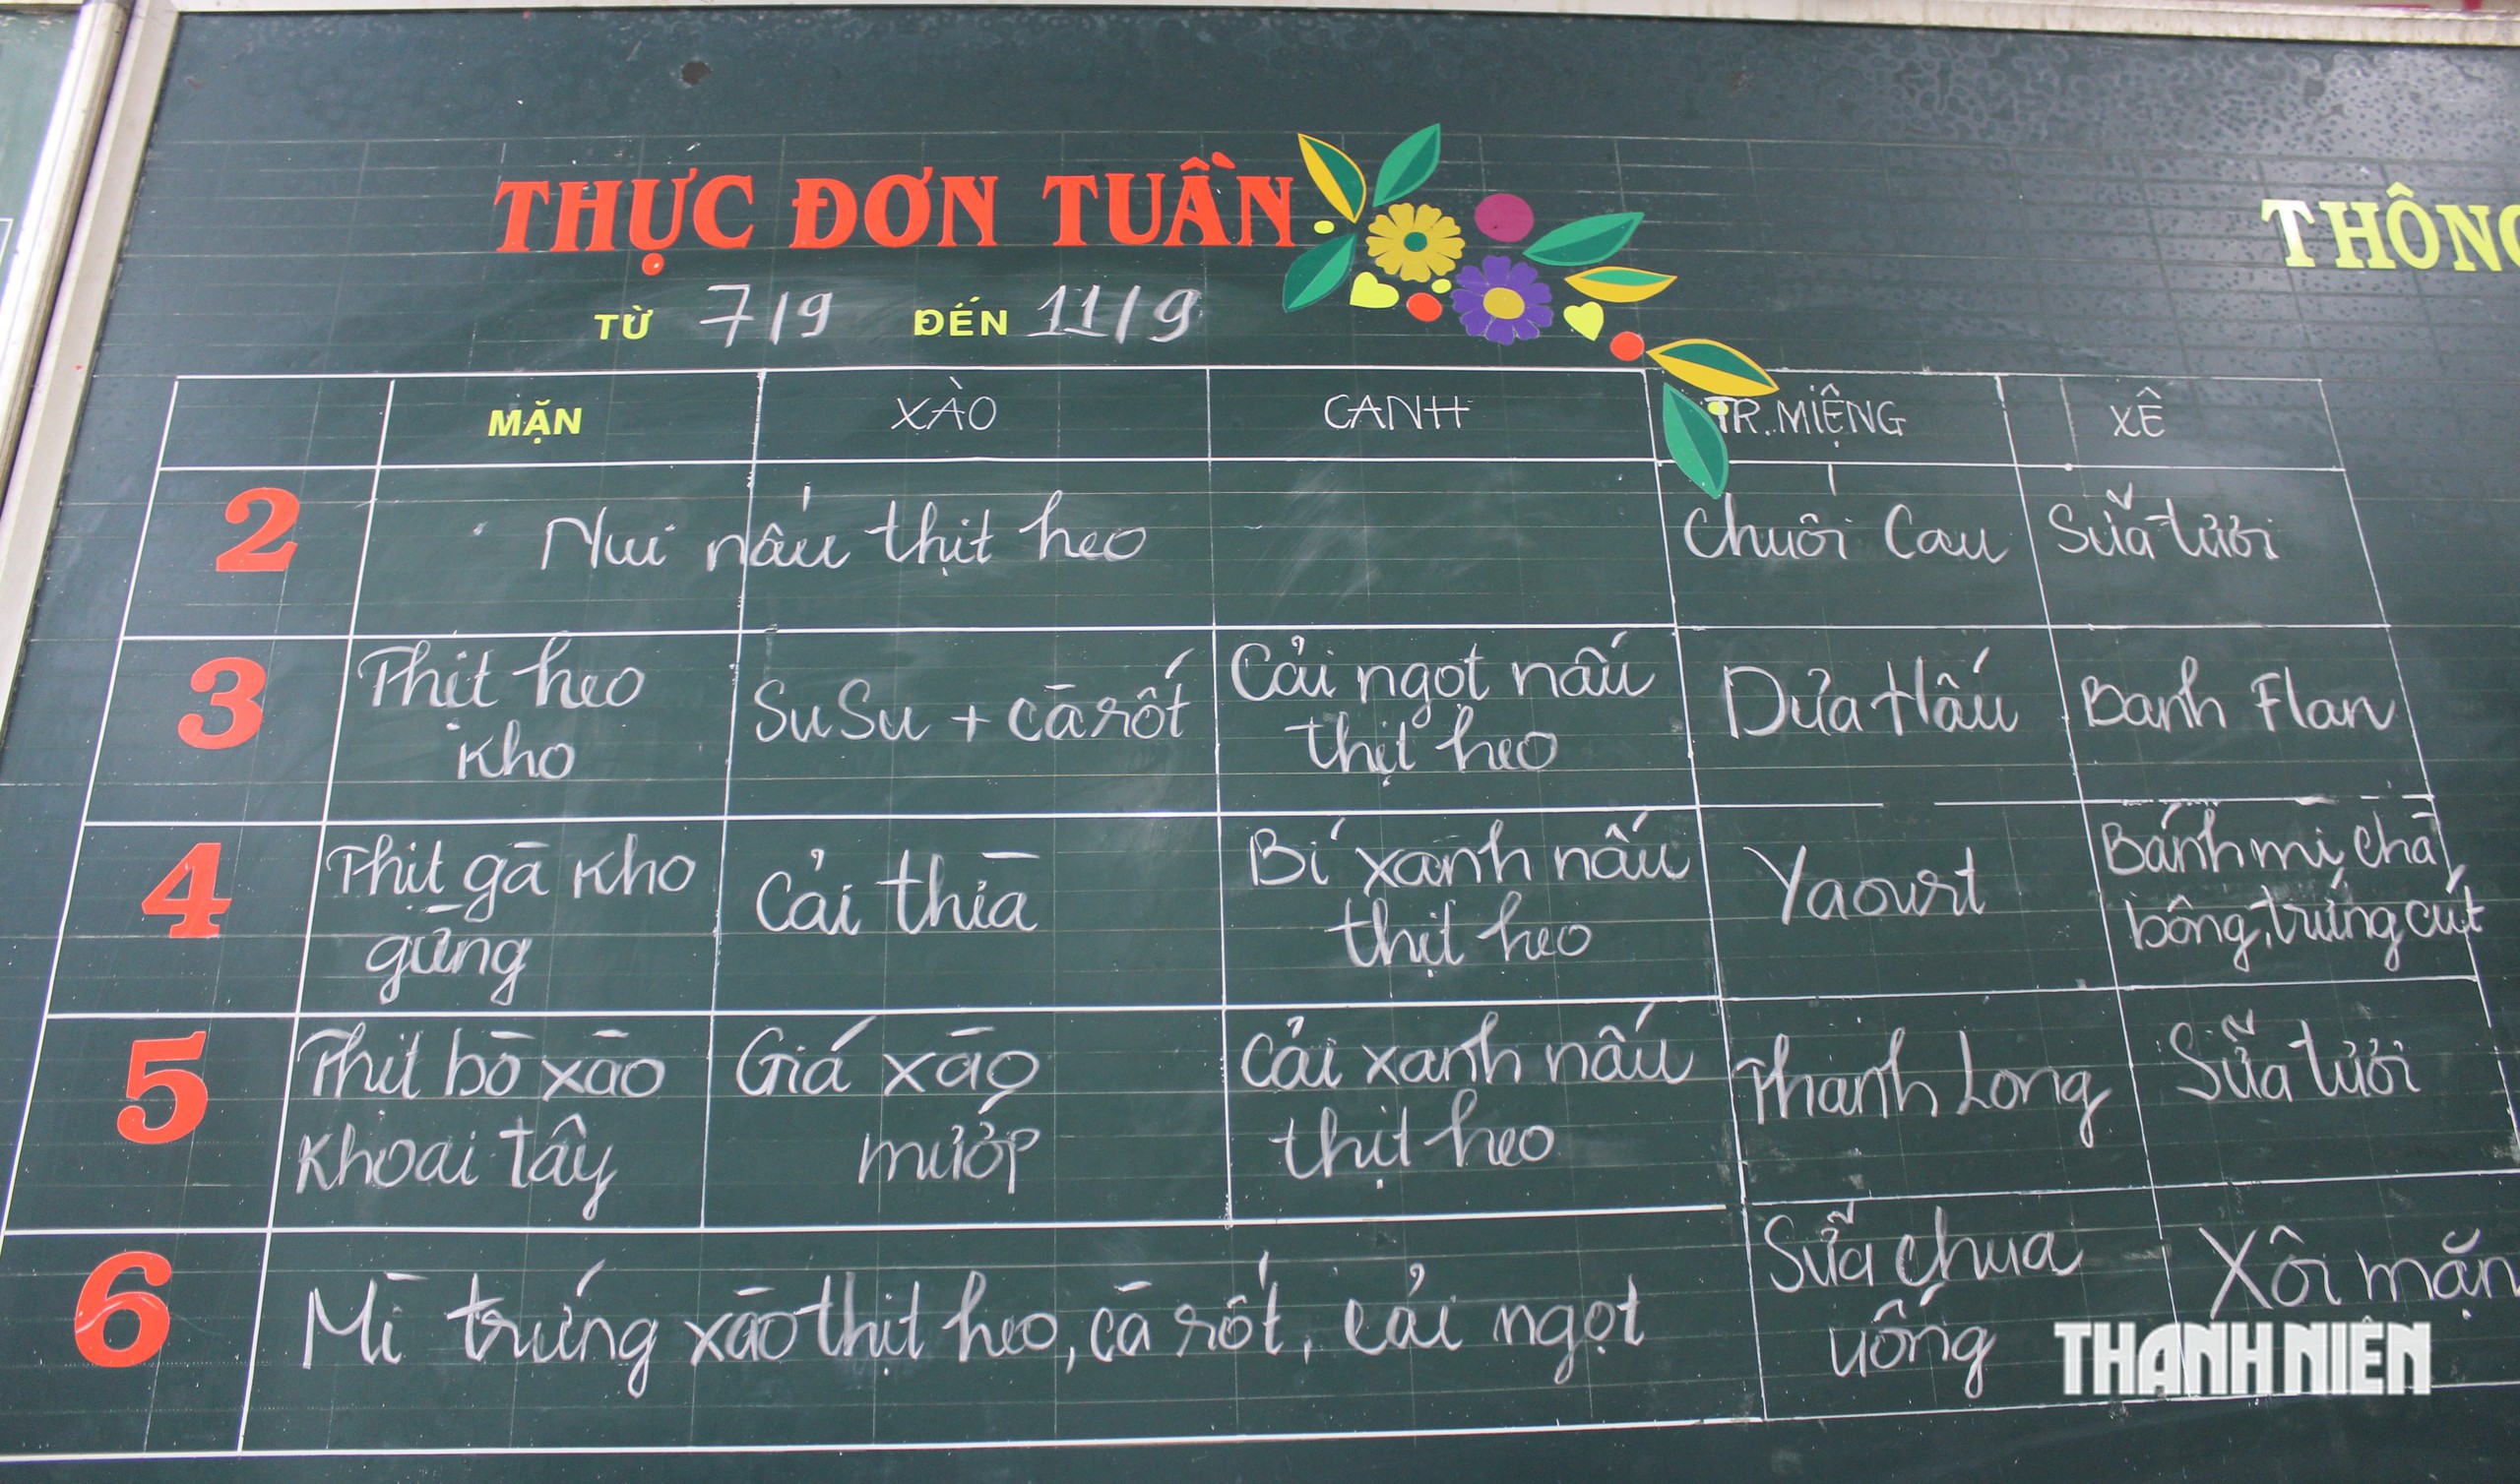 THỰC ĐƠN TUẦN
THÔNG
TỪ 7/9 ĐẾN 11/9
MẶN XÀO CANH TR.MIỆNG XẾ
2 Nui nấu thịt heo Chuối Cau Sữa tươi
3 Thịt heo SuSu + cà rốt Cải ngọt nấu Dưa Hấu Banh Flan
kho thịt heo
4 Thịt gà kho Cải thìa Bí xanh nấu Yaourt Bánh mì, chà
gừng thịt heo bông, trứng cút
5 Thịt bò xào Giá xào Cải xanh nấu Thanh Long Sữa tươi
Khoai tây mướp thịt heo
6 Mì trứng xào thịt heo, cà rốt, cải ngọt Sữa chua Xôi mặn
uống
THANH NIÊN